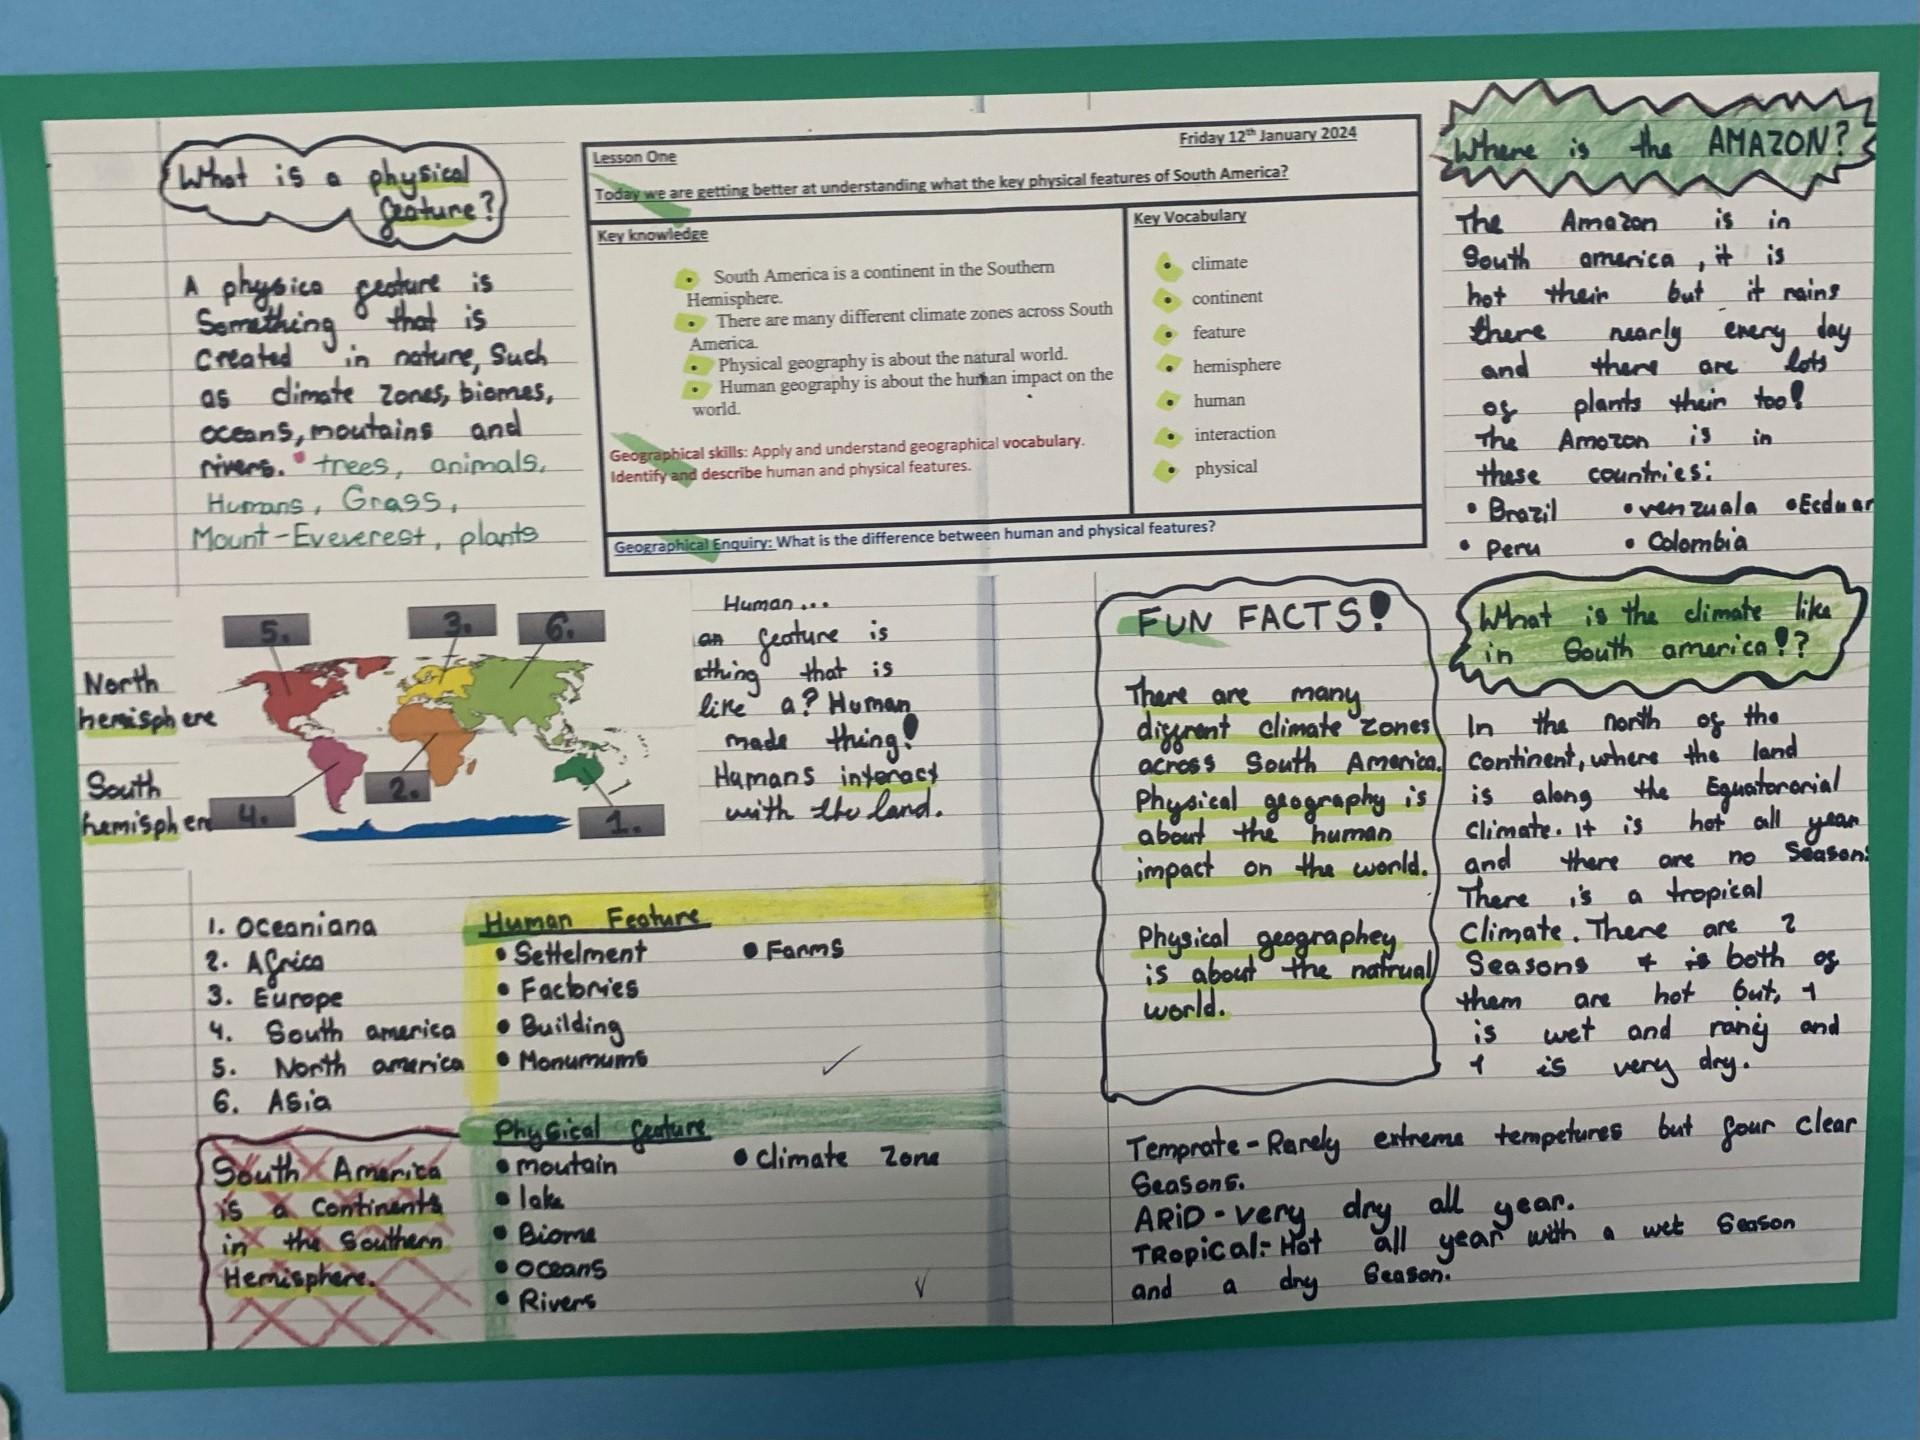 What is a physical
feature?
A physica feature is
Something that is
Created in nature, Such
as climate zones, biomes,
oceans, moutains and
rivers. trees, animals,
Humans, Grass,
Mount-Eveverest, plants
Friday 12th January 2024
Lesson One
Today we are getting better at understanding what the key physical features of South America?
Key knowledge
• South America is a continent in the Southern
Hemisphere.
• There are many different climate zones across South
America.
• Physical geography is about the natural world.
• Human geography is about the human impact on the
world.
Geographical skills: Apply and understand geographical vocabulary.
Identify and describe human and physical features.
Key Vocabulary
• climate
• continent
• feature
• hemisphere
• human
• interaction
• physical
Geographical Enquiry: What is the difference between human and physical features?
Where is the AMAZON?
The Amazon is in
South america, it is
hot their but it rains
there nearly every day
and there are lots
of plants their too!
The Amazon is in
these countries:
• Brazil • venzuala • Ecduar
• Peru • Colombia
5. 3. 6.
North
hemisphere
South
hemispher
4. 2. 1.
Human...
an feature is
thing that is
like a? Human
made thing!
Humans interact
with the land.
1. Oceaniana
2. Africa
3. Europe
4. South america
5. North america
6. Asia
South America
is a Continents
in the Southern
Hemisphere.
Human Feature
• Settelment • Farms
• Factories
• Building
• Monumums
Physical feature
• moutain • Climate Zone
• lake
• Biome
• oceans
• Rivers
FUN FACTS!
There are many
diffrent climate zones
across South America.
Physical geography is
about the human
impact on the world.
Physical geographey
is about the natrual
world.
What is the climate like
in South america!?
In the north of the
Continent, where the land
is along the Equatororial
Climate. It is hot all year
and there are no Season
There is a tropical
Climate. There are 2
Seasons + is both of
them are hot but, 1
is wet and raniy and
1 is very dry.
Temprate - Rarely extreme tempetures but four clear
Seasons.
ARiD - very dry all year.
TROPiCal:- Hot all year with a wet Season
and a dry Season.